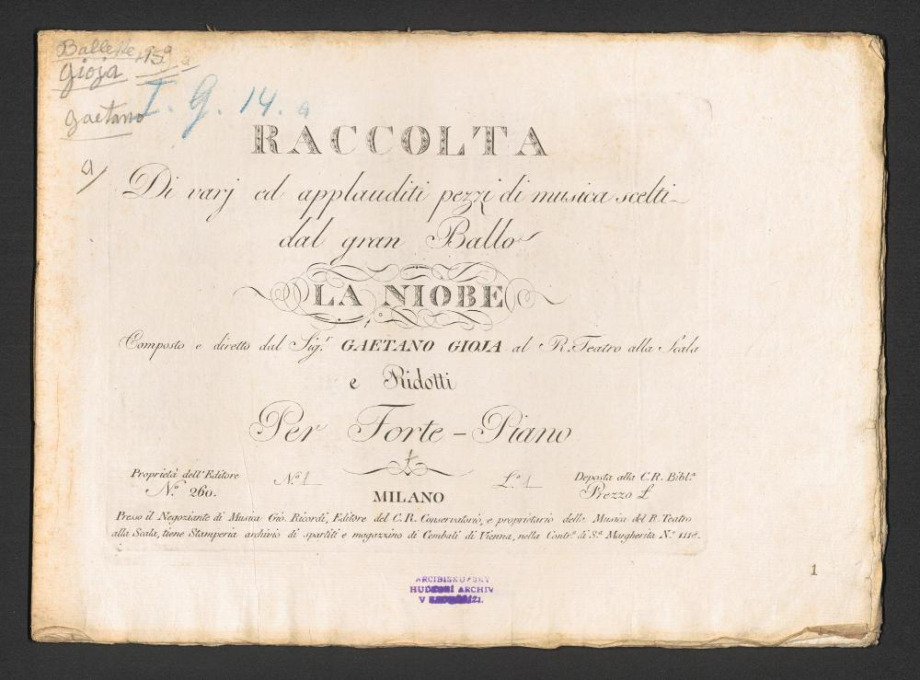 Ballette 
Gioja
Gaetano
I. G. 14. a
a/
RACCOLTA
Di varj ed applauditi pezzi di musica scelti
dal gran Ballo
LA NIOBE
Composto e diretto dal Sig.r GAETANO GIOJA al R. Teatro alla Scala
e Ridotti
Per Forte-Piano
Proprietà dell'Editore N.o 1 L.a 1 Deposta alla C.R. Bibl.a
N.o 260. Prezzo L
MILANO
Presso il Negoziante di Musica Gio. Ricordi, Editore del C.R. Conservatorio, e proprietario della Musica del R. Teatro
alla Scala, tiene Stamperia archivio di spartiti e magazzino di Cembali di Vienna, nella Contr.a di S.a Margherita N.o 1118.
1
ARCIBISKUPSKÝ
HUDEBNÍ ARCHIV
V